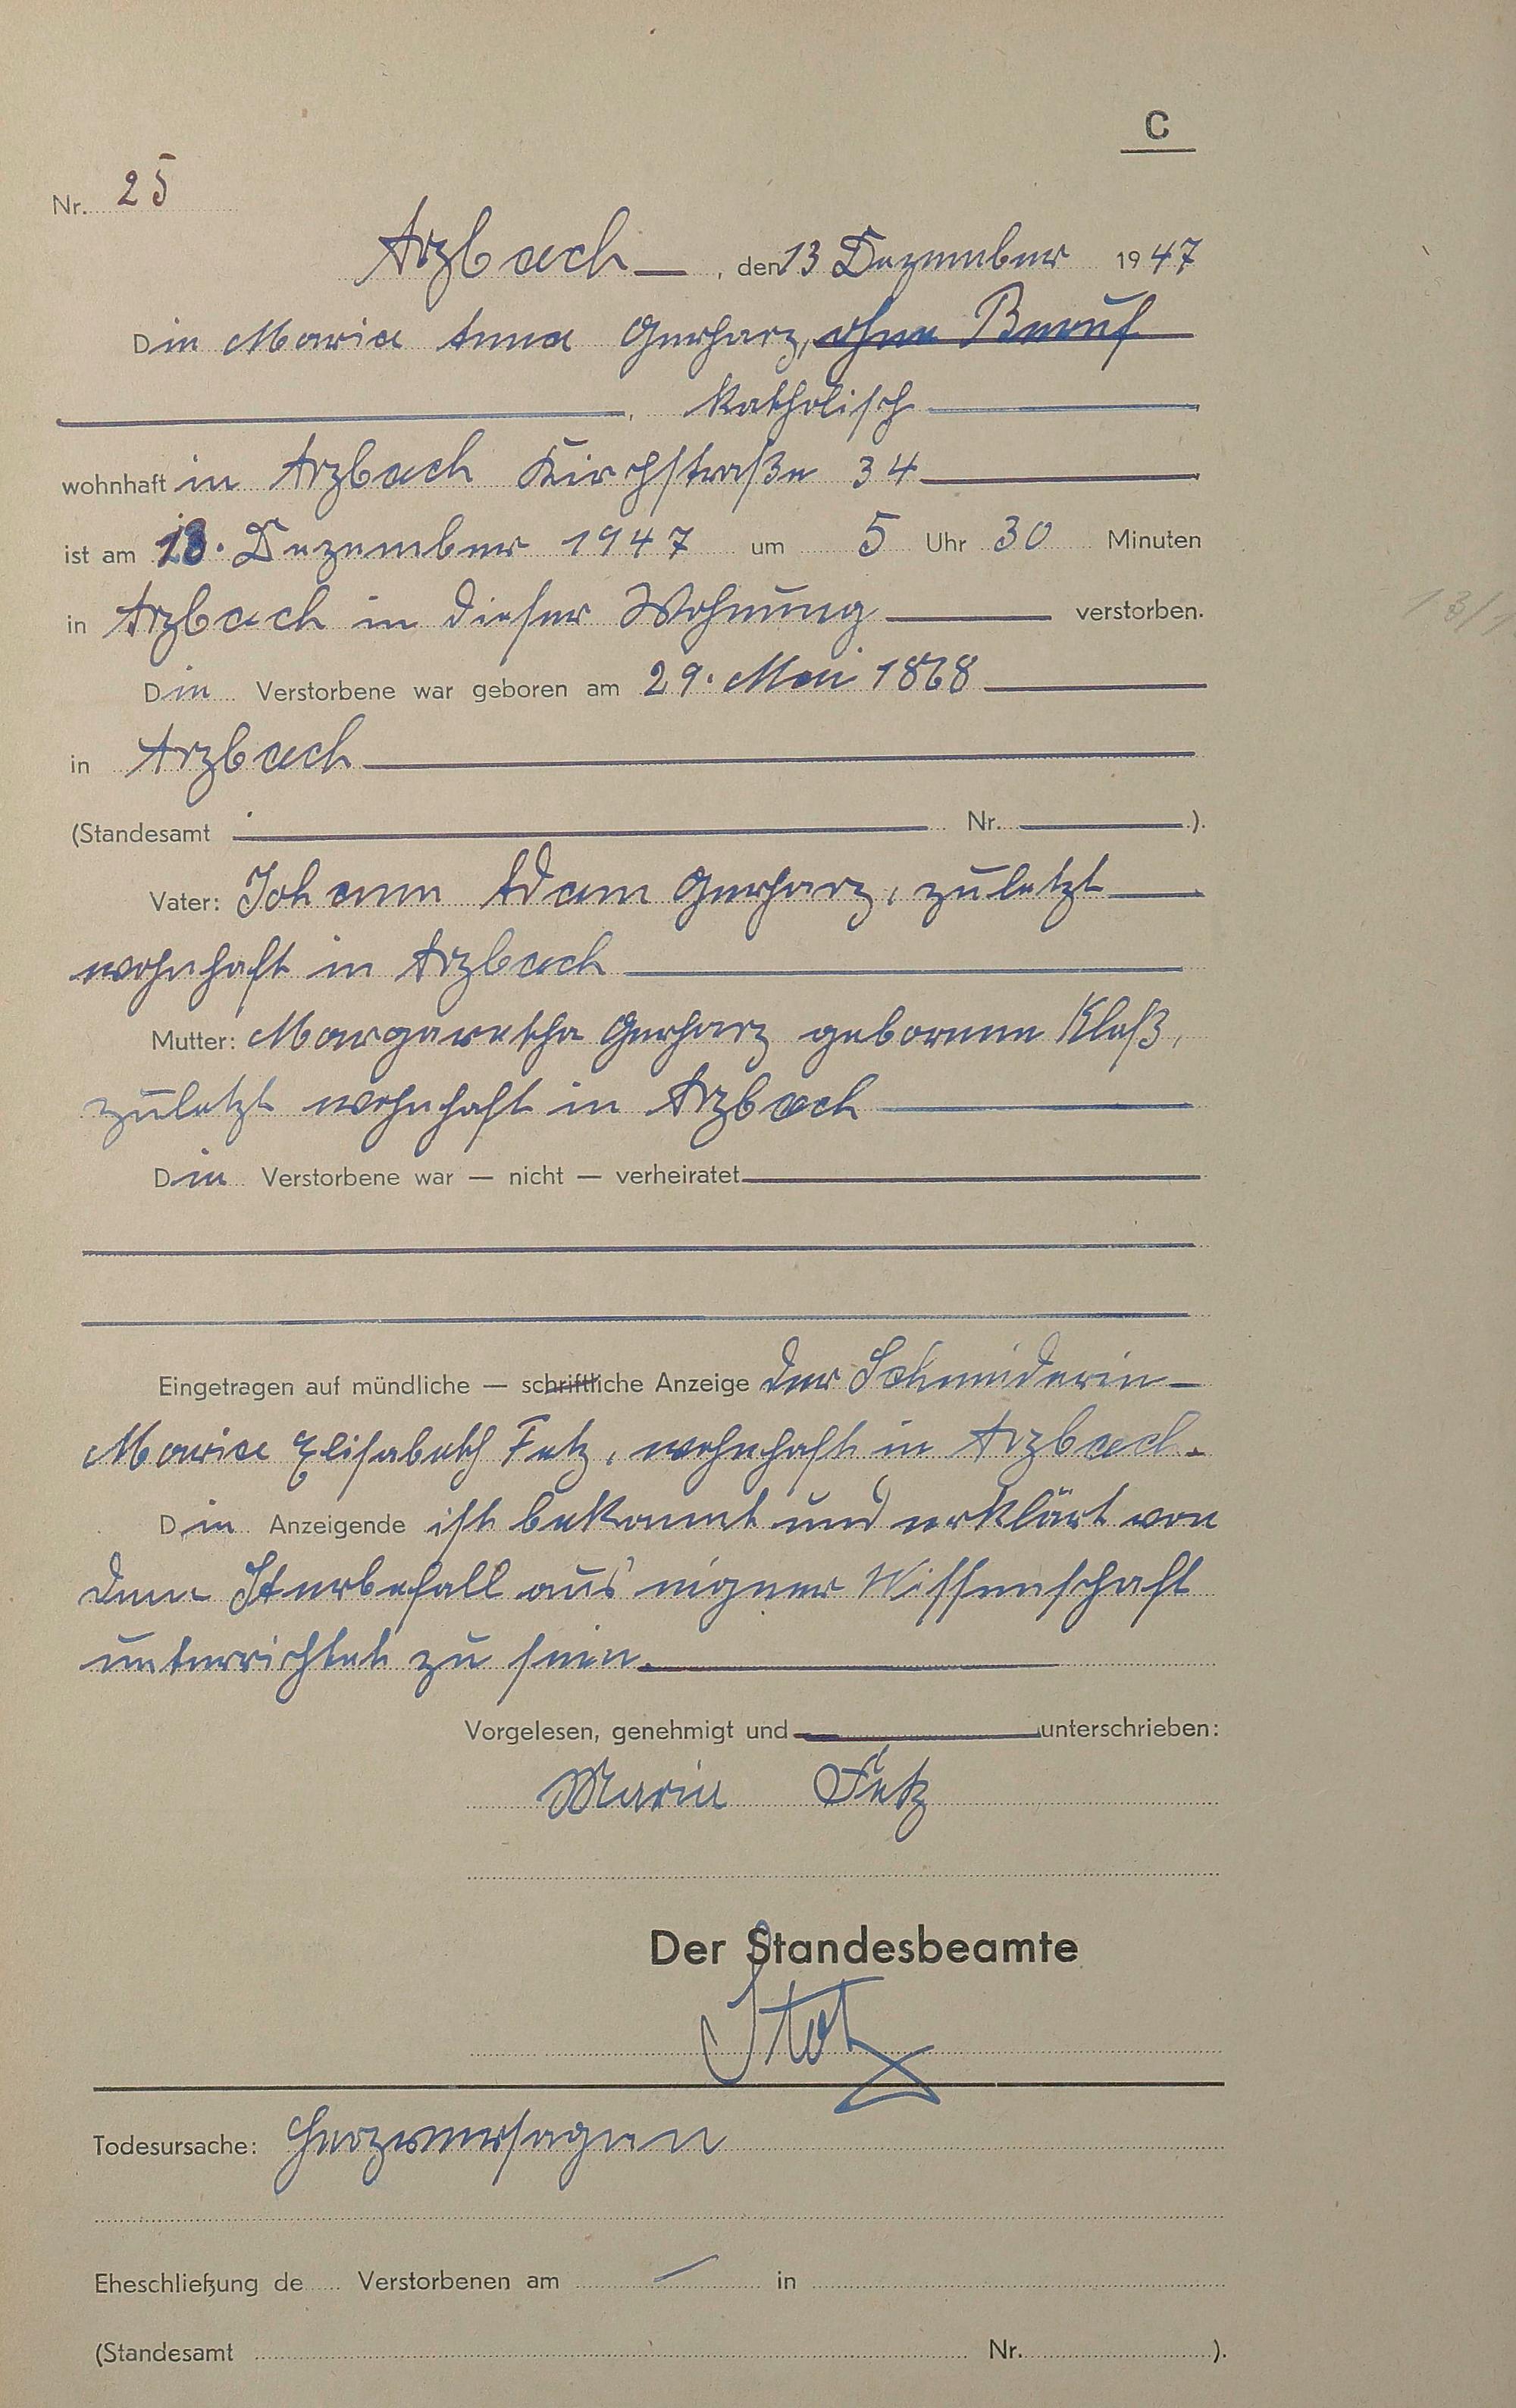 C
Nr. 25
Arzbach, den 13 Dezember 1947
Die Maria Anna Gerharz, ohne Beruf
, katholisch
wohnhaft in Arzbach Kirchstraße 34
ist am 13. Dezember 1947 um 5 Uhr 30 Minuten
in Arzbach in dieser Wohnung verstorben.
Die Verstorbene war geboren am 29. Mai 1868
in Arzbach
(Standesamt Nr. ).
Vater: Johann Adam Gerharz, zuletzt
wohnhaft in Arzbach
Mutter: Margaretha Gerharz geborene Klaß,
zuletzt wohnhaft in Arzbach
Die Verstorbene war — nicht — verheiratet
Eingetragen auf mündliche — schriftliche Anzeige der Schneiderin
Maria Elisabeth Fetz, wohnhaft in Arzbach.
Die Anzeigende ist bekannt und erklärt von
dem Sterbefall aus eigner Wissenschaft
unterrichtet zu sein.
Vorgelesen, genehmigt und unterschrieben:
Maria Fetz
Der Standesbeamte
Todesursache: Herzversagen
Eheschließung de Verstorbenen am in
(Standesamt Nr. ).